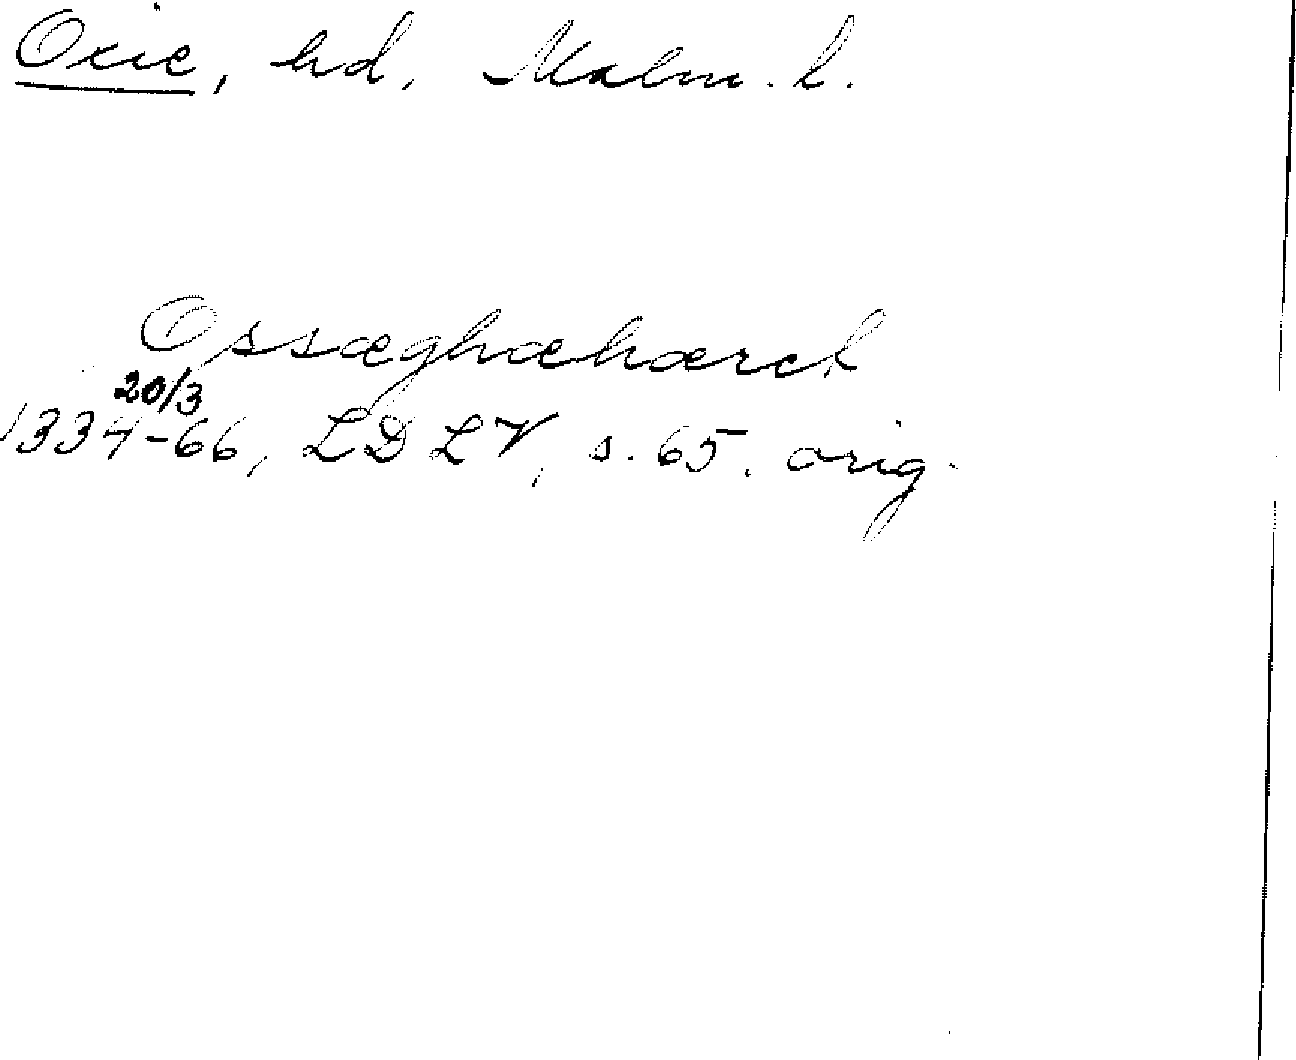 Oxie, hd, Malm. l.
Ossæghæhæret
20/3
1334-66, LD LV, s. 65. orig.